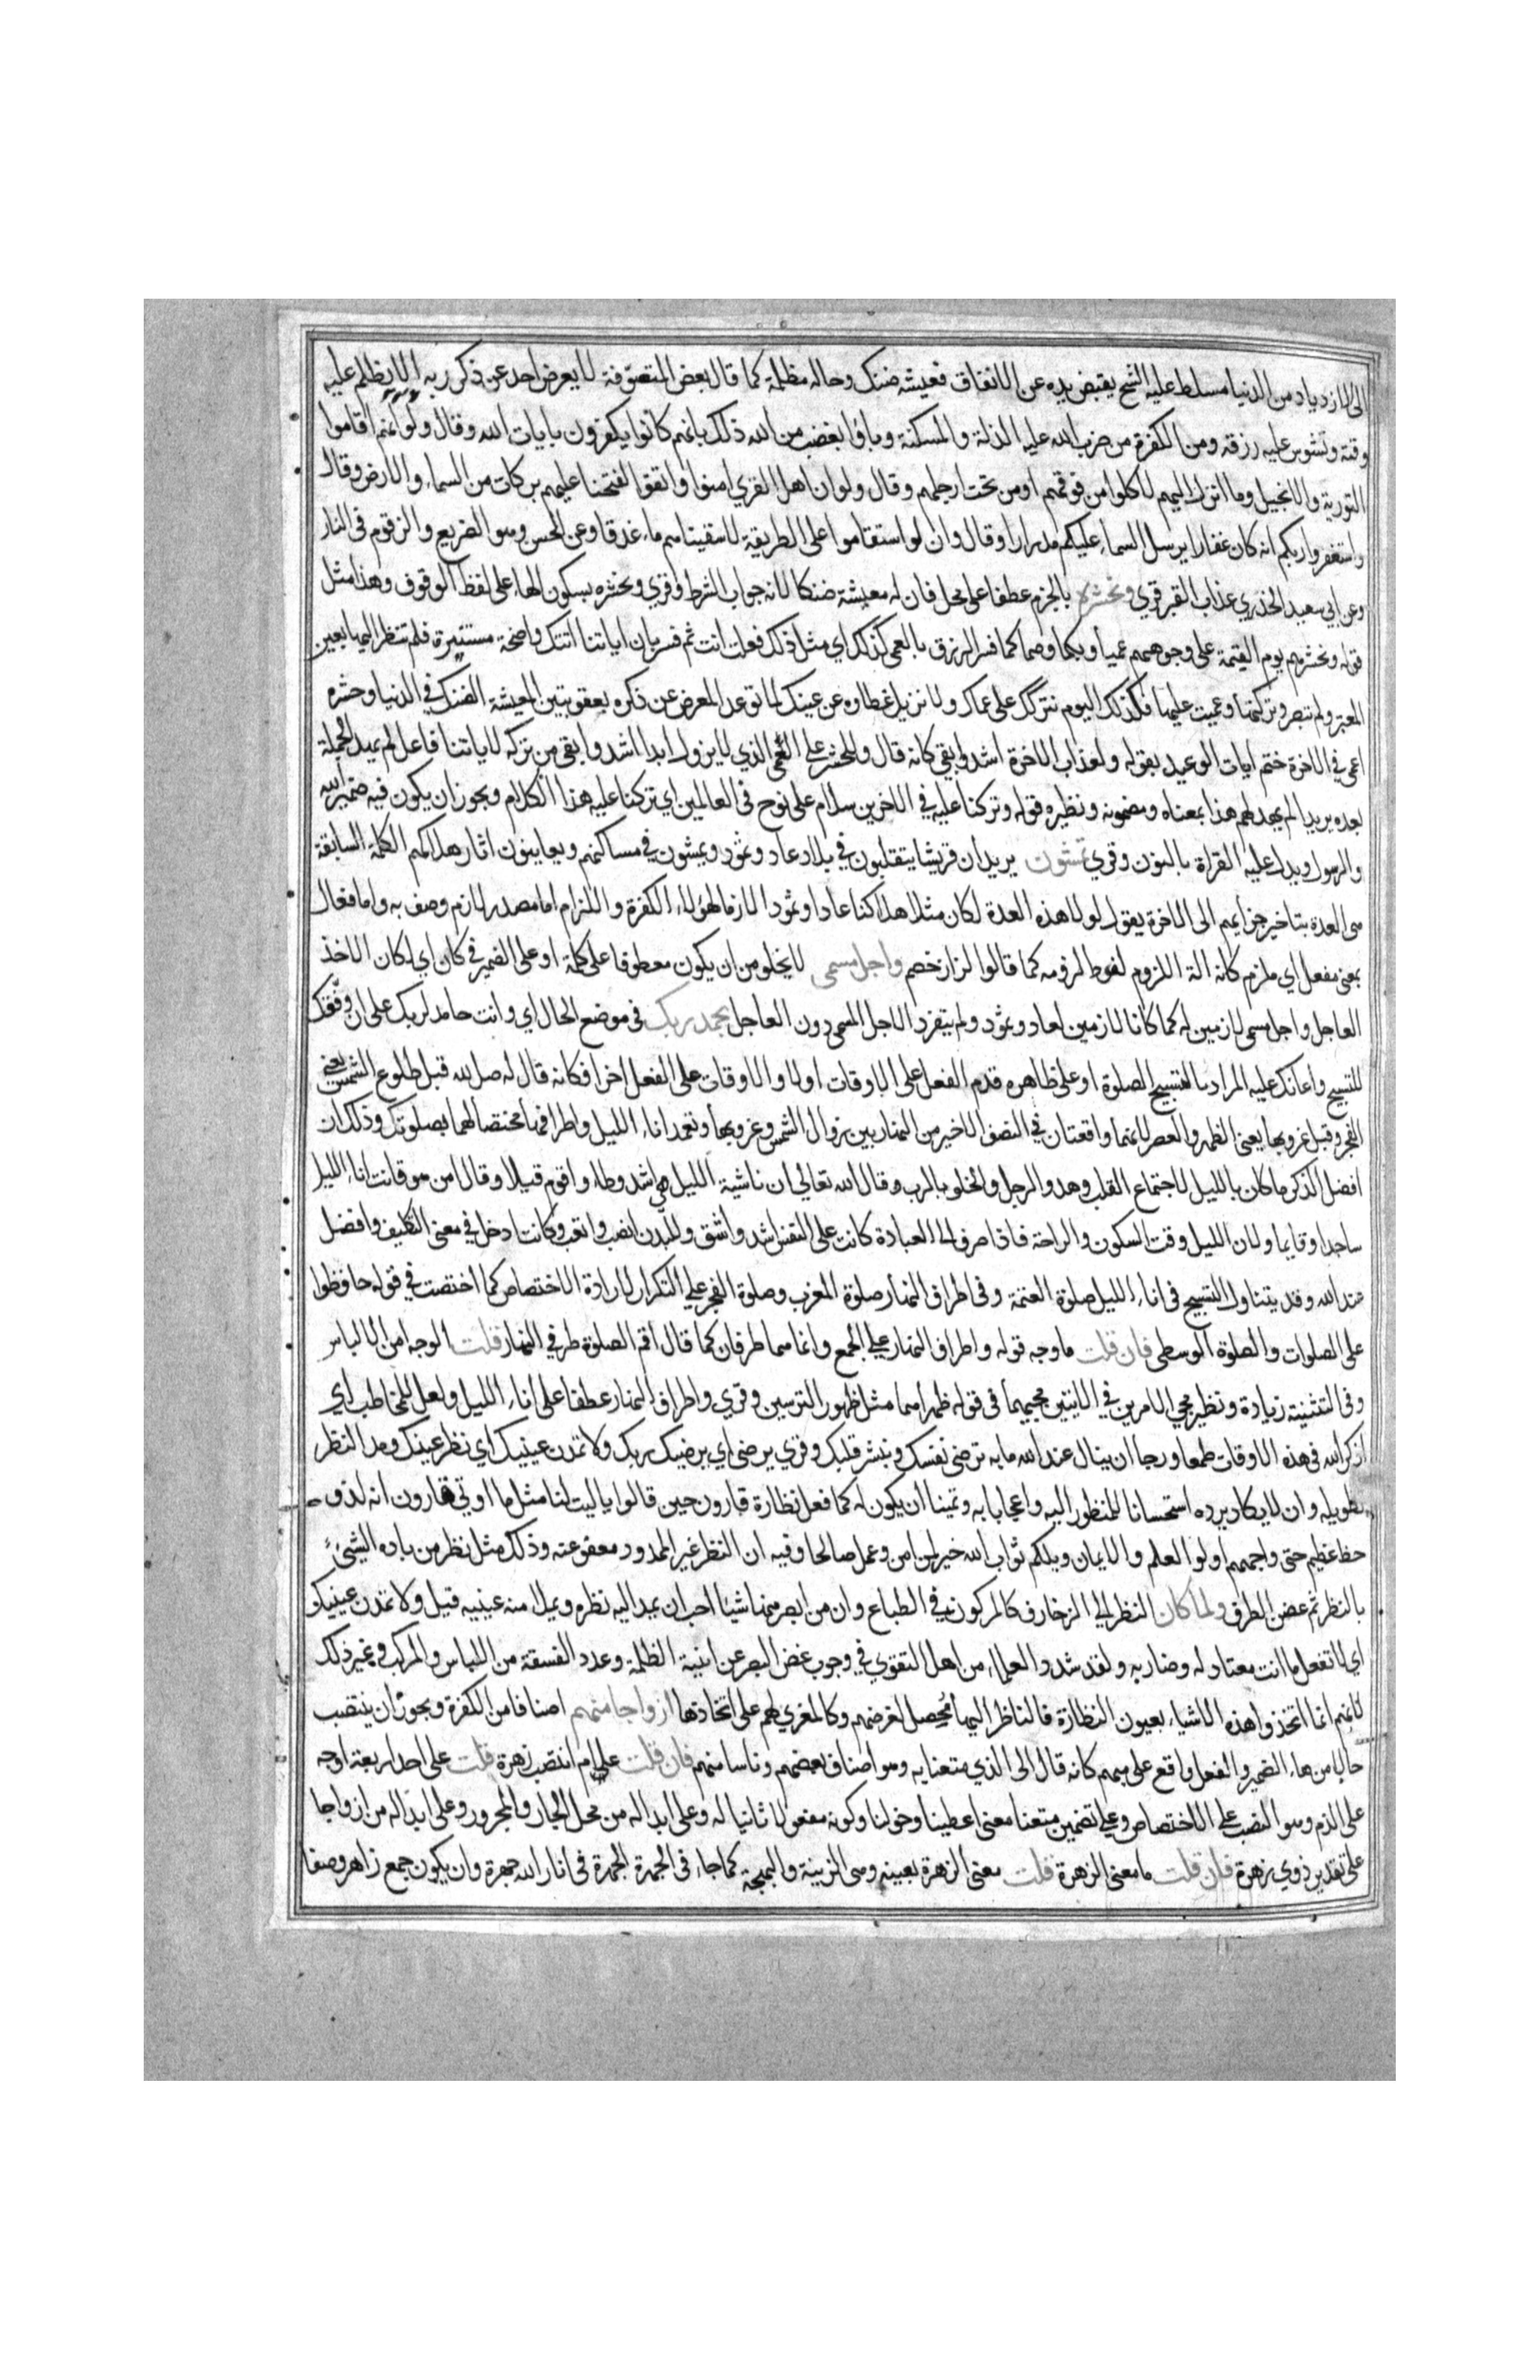 الى الازدياد من الدنيا مسلط عليه الشح يقبض يده عن الانفاق فعيشه ضنك وحاله مظلمة كما قال بعض المتصوفة لا يعرض احد عن ذكر ربه الا اظلم عليه
وقته وتشوش عليه رزقه ومن الكفرة من ضرب الله عليه الذلة والمسكنة وباؤا بغضب من الله ذلك بانهم كانوا يكفرون بايات الله وقال ولو انهم اقاموا
التورية والانجيل وما انزل اليهم لاكلوا من فوقهم ومن تحت ارجلهم وقال ولو ان اهل القري امنوا واتقوا لفتحنا عليهم بركات من السماء والارض وقال
واستغفروا ربكم انه كان غفارا يرسل السماء عليكم مدرارا وقال وان لو استقاموا على الطريقة لاسقيناهم ماء غدقا وعن الحسن وهو الضريع والزقوم في النار
وعن ابي سعيد الخدري عذاب القبر قري ونحشره بالجزم عطفا على محل فان له معيشة ضنكا لانه جواب الشرط وقري ونحشره بسكون الهاء على لفظ الوقوف وهذا مثل
قوله ونحشرهم يوم القيمة على وجوههم عميا وبكما وصما كما فسر الزرق بالعمى كذلك اي مثل ذلك فعلت انت ثم فسر بان اياتنا اتتك واضحة مستنيرة فلم تنظر اليها بعين
المعتبر ولم تتبصر وتركتها وعميت عليها فكذلك اليوم نتركك على عماك ولا نزيل غطاوه عن عينيك لما توعد المعرض عن ذكره بعقوبتين المعيشة الضنك في الدنيا وحشره
اعمى في الاخرة ختم ايات الوعيد بقوله ولعذاب الاخرة اشد وابقى كانه قال وللحشر على العمى الذي لا يزول ابدا اشد وابقى من تركه لاياتنا فاعل لم يهد الجملة
بعده يريد الم يهد لهم هذا بمعناه ومضمونه ونظيره قوله وتركنا عليه في الاخرين سلام على نوح في العالمين اي تركنا عليه هذا الكلام ويجوز ان يكون فيه ضمير الله
والرسول ويدل عليه القراة بالنون وقري تمشون يريد ان قريشا يتقلبون في بلاد عاد وثمود ويمشون في مساكنهم ويعاينون اثار هلاكهم الكلمة السابقة
هى العدة بتاخير جزايهم الى الاخرة يقول لولا هذه العدة لكان مثل اهلاكنا عادا وثمودا لازما لهؤلاء الكفرة واللزام اما مصدر لازم وصف به واما فعال
بمعنى مفعل اي ملزم كانه الة اللزوم لفرط لزومه كما قالوا لزاز خصم واجل مسمى لا يخلو من ان يكون معطوفا على كلمة او على الضمير في كان اي لكان الاخذ
العاجل واجل مسمى لازمين له كما كانا لازمين لعاد وثمود ولم ينفرد الاجل المسمى دون العاجل بحمد ربك في موضع الحال اي وانت حامد لربك على ان وفقك
للتسبيح واعانك عليه المراد بالتسبيح الصلوة او على ظاهره قدم الفعل على الاوقات اولا والاوقات على الفعل اخرا فكانه قال له صل لله قبل طلوع الشمس يعني
الفجر وقبل غروبها يعني الظهر والعصر لانهما واقعتان في النصف الاخير من النهار بين زوال الشمس وغروبها وتعمد اناء الليل واطراف النهار مختصا لهما بصلوتك وذلك ان
افضل الذكر ما كان بالليل لاجتماع القلب وهدو الرجل والخلو بالرب وقال الله تعالي ان ناشية الليل هي اشد وطاء واقوم قيلا وقال امن هو قانت اناء الليل
ساجدا وقايما ولان الليل وقت السكون والراحة فاذا صرف الى العبادة كانت على النفس اشد واشق وللبدن انصب واتعب وكانت ادخل في معنى التكليف وافضل
عند الله وقد يتناول التسبيح في اناء الليل صلوة العتمة وفي اطراف النهار صلوة المغرب وصلوة الفجر على التكرار لارادة الاختصاص كما اختصت في قوله حافظوا
على الصلوات والصلوة الوسطى فان قلت ما وجه قوله واطراف النهار على الجمع وانما هما طرفان كما قال اقم الصلوة طرفي النهار قلت الوجه امن الالباس
وفي التثنية زيادة ونظير مجي الامرين في الايتين مجيهما في قوله ظهراهما مثل ظهور الترسين وقري واطراف النهار عطفا على اناء الليل ولعل للمخاطب اي
اذكر الله في هذه الاوقات طمعا ورجا ان ينال عند الله ما به ترضى نفسك وينشر قلبك وقري يرضى اي يرضيك ربك ولا تمدن عينيك اي نظر عينيك ومد النظر
تطويله وان لا يكاد يرده استحسانا للمنظور اليه واعجابا به وتمينا ان يكون له كما فعل نظارة قارون حين قالوا يا ليت لنا مثل ما اوتي قارون انه لذو
حظ عظيم حتى واجههم اولوا العلم والايمان ويلكم ثواب الله خير لمن امن وعمل صالحا وفيه ان النظر غير الممدود معفو عنه وذلك مثل نظر من باده الشيئ
بالنظر ثم غض الطرف ولما كان النظر الى الزخارف كالمركوز في الطباع وان من ابصر منها شيئا احب ان يمد اليه نظره ويملا منه عينيه قيل ولا تمدن عينيك
اي لا تفعل ما انت معتاد له وضار به ولقد شدد العلماء من اهل التقوي في وجوب غض البصر عن ابنية الظلمة وعدد الفسقة من اللباس والمركب وغير ذلك
لانهم انما اتخذوا هذه الاشياء لعيون النظارة فالناظر اليها محصل لغرضهم وكالمغري لهم على اتخاذها ازواجا منهم اصنافا من الكفرة ويجوز ان ينتصب
حالا من هاء الضمير والفعل واقع على منهم كانه قال الى الذي متعنا به وهو اصناف بعضهم وناسا منهم فان قلت علام انتصب زهرة قلت على احد اربعة اوجه
على الذم وهو النصب على الاختصاص وعلى تضمين متعنا معنى اعطينا وخولنا وكونه مفعولا ثانيا له وعلى ابداله من محل الجار والمجرور وعلى ابداله من ازواجا
على تقدير ذوي زهرة فان قلت ما معنى الزهرة قلت معنى الزهرة بعينه وهى الزينة والبهجة كما جاء في الجهرة الجهرة في ارنا الله جهرة وان يكون جمع زاهر وصفا